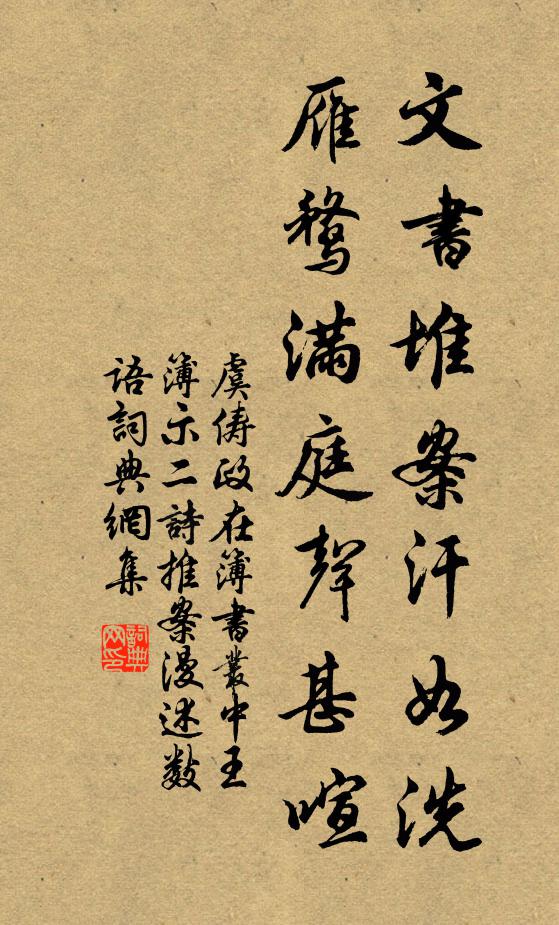 文書堆案汗如洗
雁鶩滿庭聲甚喧
虞儔政在簿書叢中王
簿示二詩推案漫述数
語詞典網集
詞典
网印